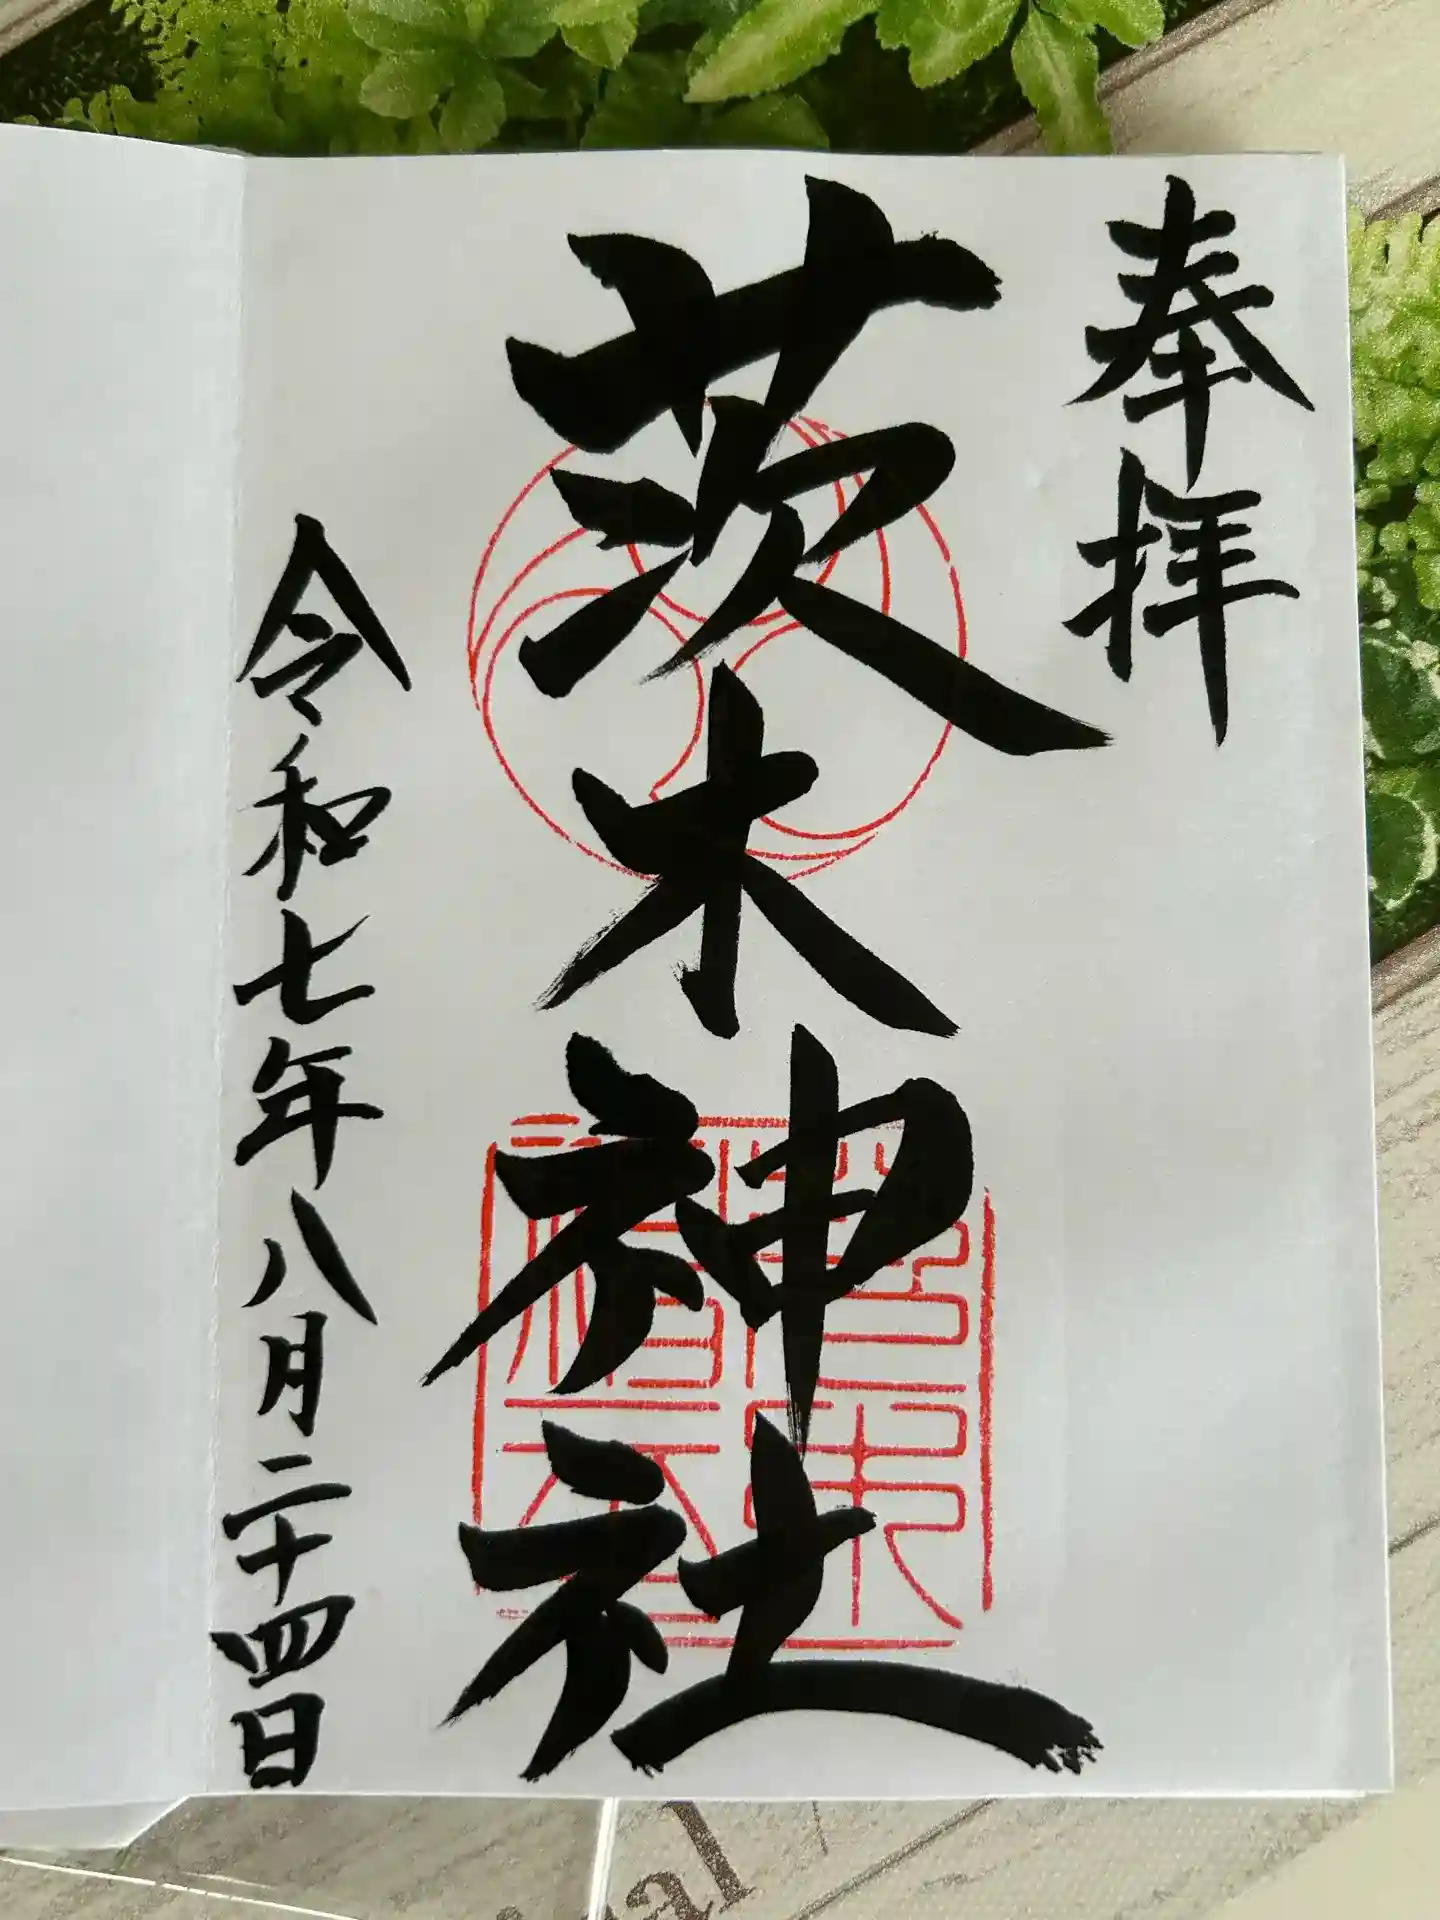 奉拝
茨木神社
令和七年八月二十四日